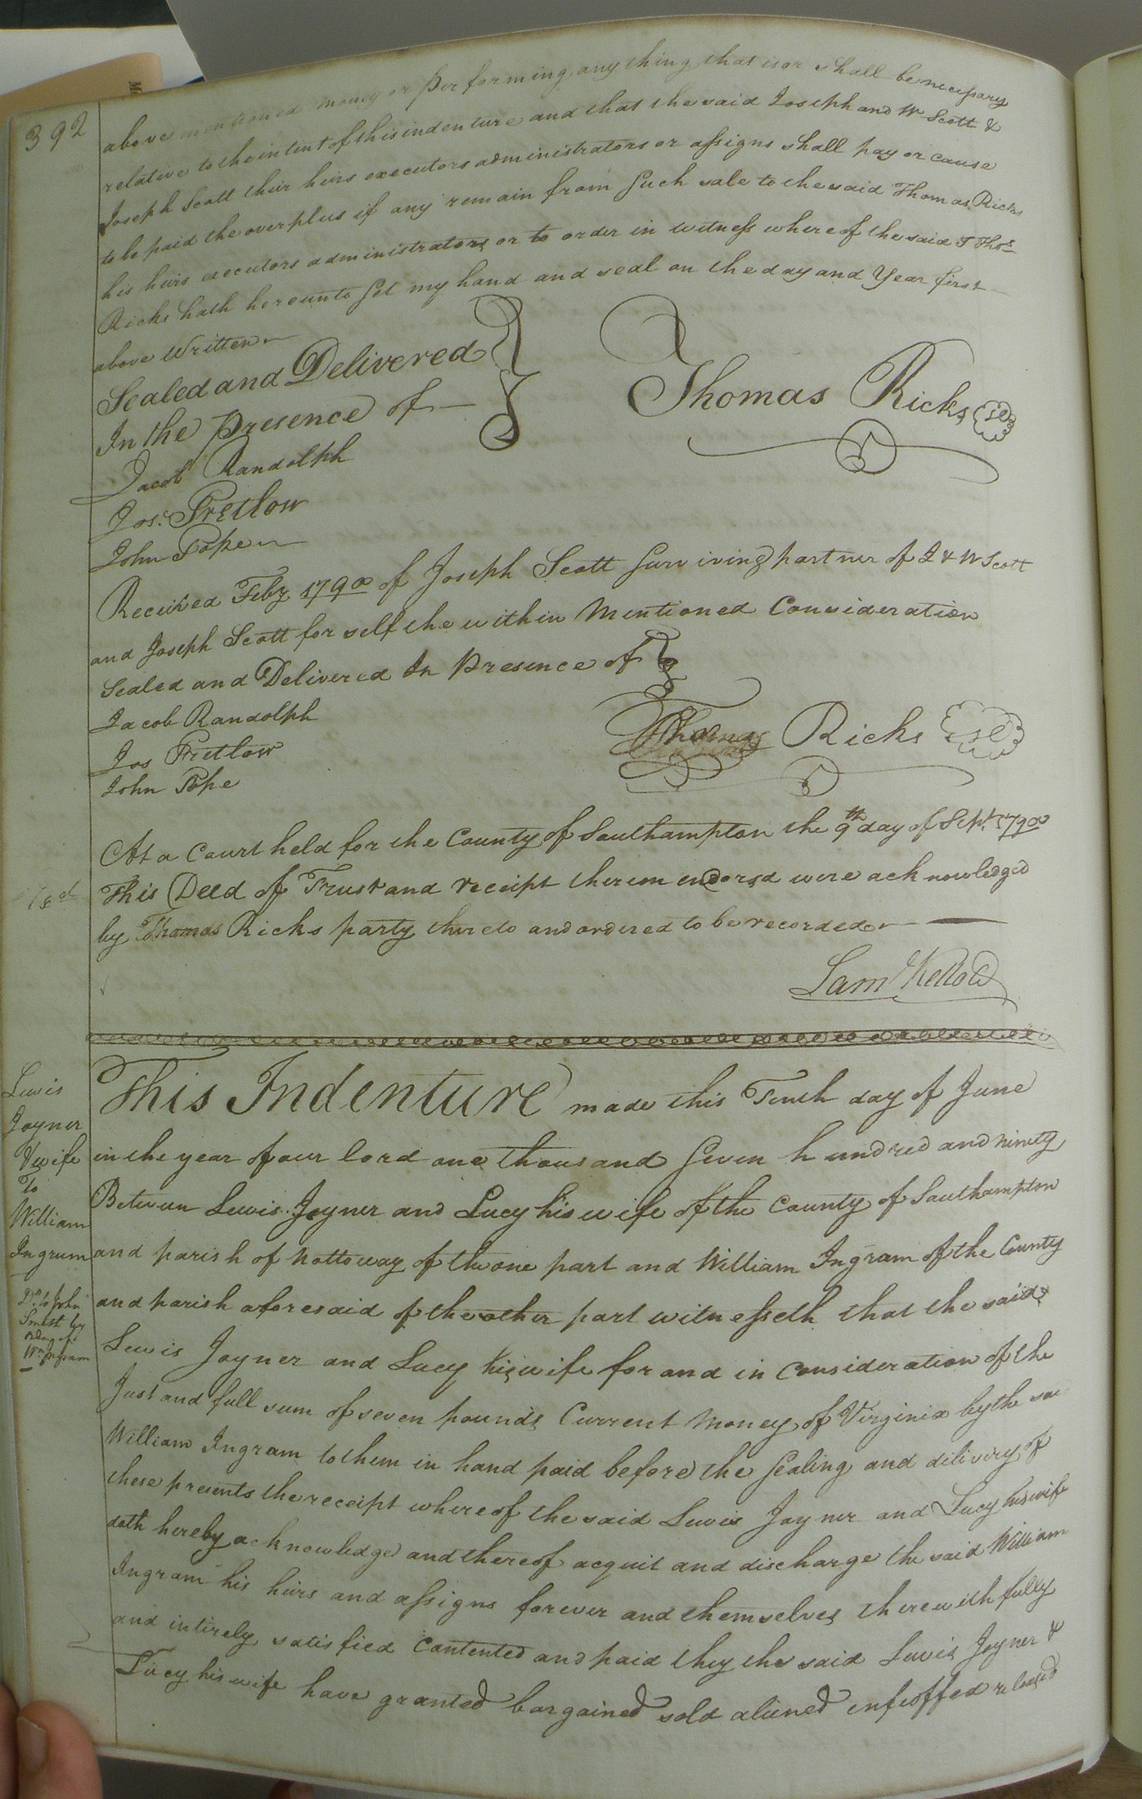 392
above mentioned money or performing any thing that is or shall be necessary
relative to the intent of this indenture and that the said Joseph and Wm Scott &
Joseph Scott their heirs executors administrators or assigns shall pay or cause
to be paid the overplus if any remain from such sale to the said Thomas Ricks
his heirs executors administrators or to order in witness whereof the said I Thos
Ricks hath hereunto set my hand and seal on the day and Year first
above Written
Sealed and Delivered
In the Presence of
Thomas Ricks
Jacob Randolph
Jos. Pretlow
John Pope
Received Feby 1790 of Joseph Scott surviving partner of J & W Scott
and Joseph Scott for self the within Mentioned Consideration
Sealed and Delivered In Presence of
Jacob Randolph
Jos Pretlow
John Pope
Thomas Ricks
At a Court held for the County of Southampton the 9th day of Sept 1790
This Deed of Trust and receipt thereon endorsd were acknowledged
by Thomas Ricks party thereto and ordered to be recorded
Sam Kello
Lewis
Joyner
& wife
To
William
Ingrum
to John
by
This Indenture made this Tenth day of June
in the year of our lord one thousand seven hundred and ninety
Between Lewis Joyner and Lucy his wife of the County of Southampton
and parish of Nottoway of the one part and William Ingram of the County
and parish aforesaid of the other part witnesseth that the said
Lewis Joyner and Lucy his wife for and in consideration of the
Just and full sum of seven pounds Current Money of Virginia by the sai
William Ingram to them in hand paid before the sealing and delivery of
these presents the receipt whereof the said Lewis Joyner and Lucy his wife
doth hereby acknowledge and thereof acquit and discharge the said William
Ingram his heirs and assigns forever and themselves therewith fully
and intirely satisfied contented and paid they the said Lewis Joyner &
Lucy his wife have granted bargained sold aliened enfeoffed released